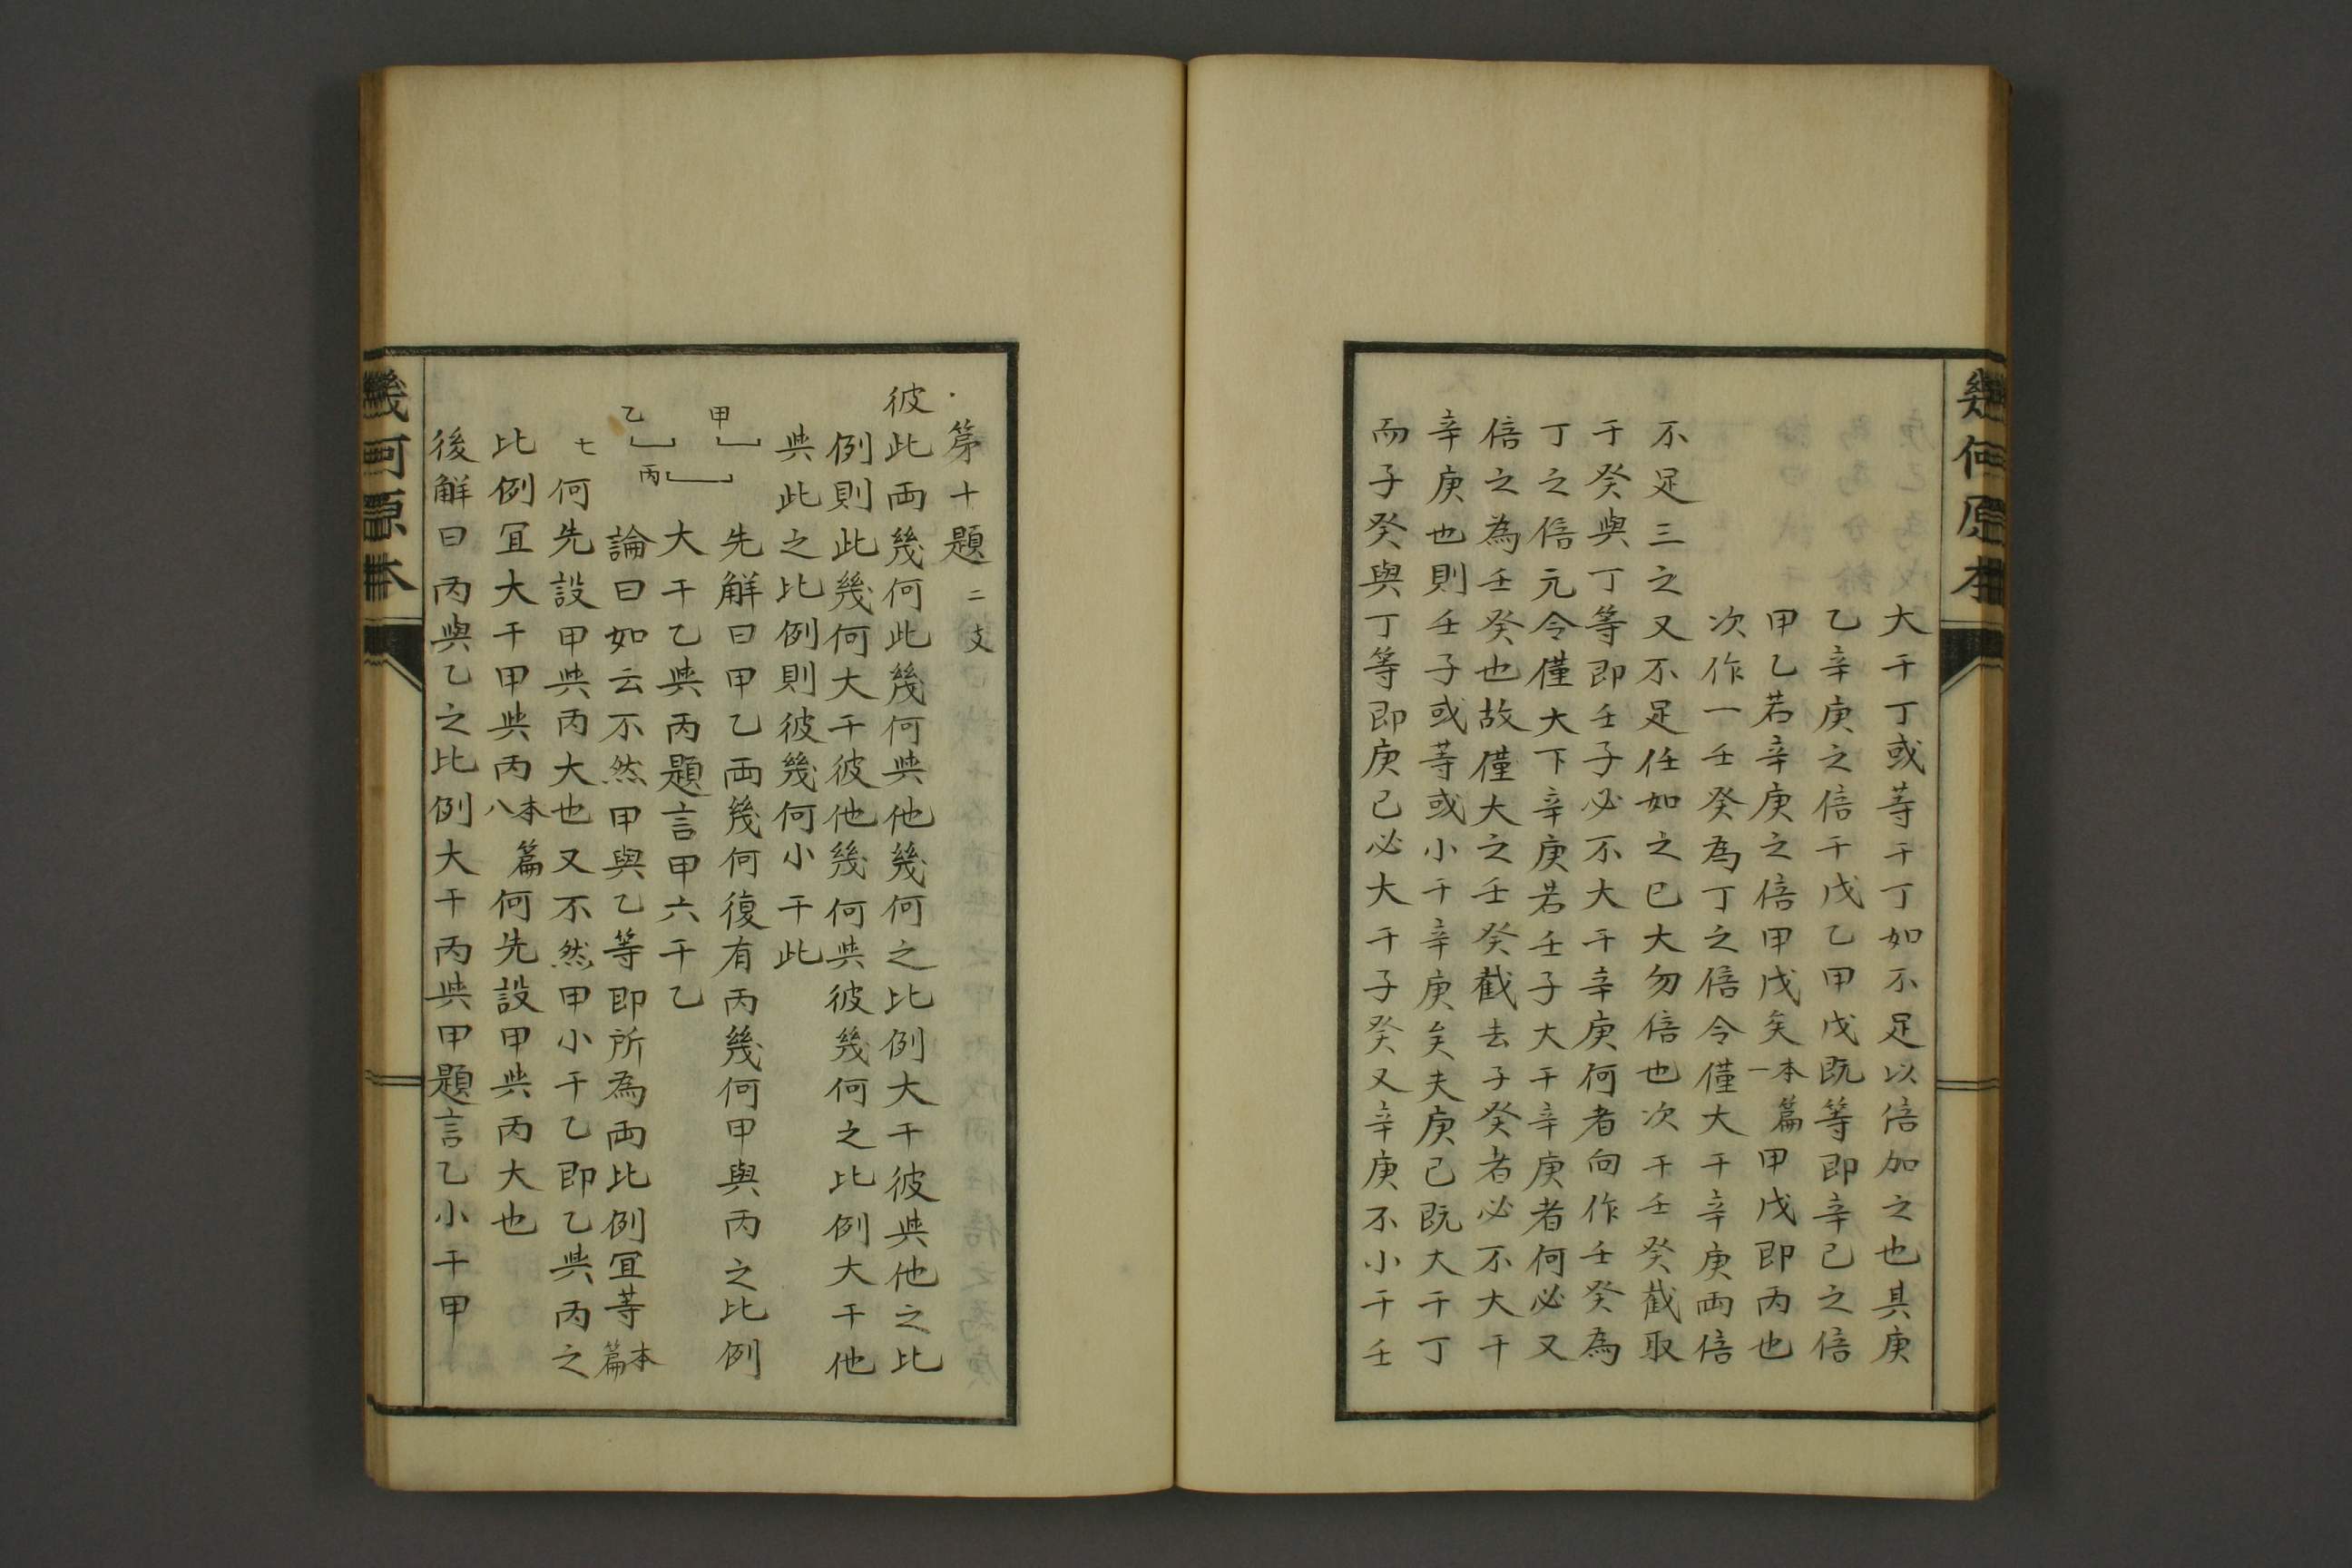 幾何原本
大干丁或等干丁如不足以倍加之也其庚
乙辛庚之倍干戊乙甲戊既等即辛己之倍
甲乙若辛庚之倍甲戊矣本篇一甲戊即丙也
次作一壬癸為丁之倍令僅大干辛庚両倍
不足三之又不足任如之已大勿倍也次干壬癸截取
于癸與丁等即壬子必不大干辛庚何者向作壬癸為
丁之倍元令僅大下辛庚若壬子大干辛庚者何必又
倍之為壬癸也故僅大之壬癸截去子癸者必不大干
辛庚也則壬子或等或小干辛庚矣夫庚己既大干丁
而子癸與丁等即庚己必大干子癸又辛庚不小干壬
第十題二支
彼此両幾何此幾何與他幾何之比例大干彼與他之比
例則此幾何大干彼他幾何與彼幾何之比例大干他
與此之比例則彼幾何小干此
甲
乙
丙
先解曰甲乙両幾何復有丙幾何甲與丙之比例
大干乙與丙題言甲六干乙
論曰如云不然甲與乙等即所為両比例冝等本篇
七何先設甲與丙大也又不然甲小干乙即乙與丙之
比例冝大干甲與丙本篇八何先設甲與丙大也
後解曰丙與乙之比例大干丙與甲題言乙小干甲
幾何原本